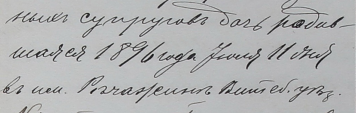 ныхъ супруговъ дочь родив-
шаяся 1896 года Июля 11 дня
въ им. Витеб. уѣз.